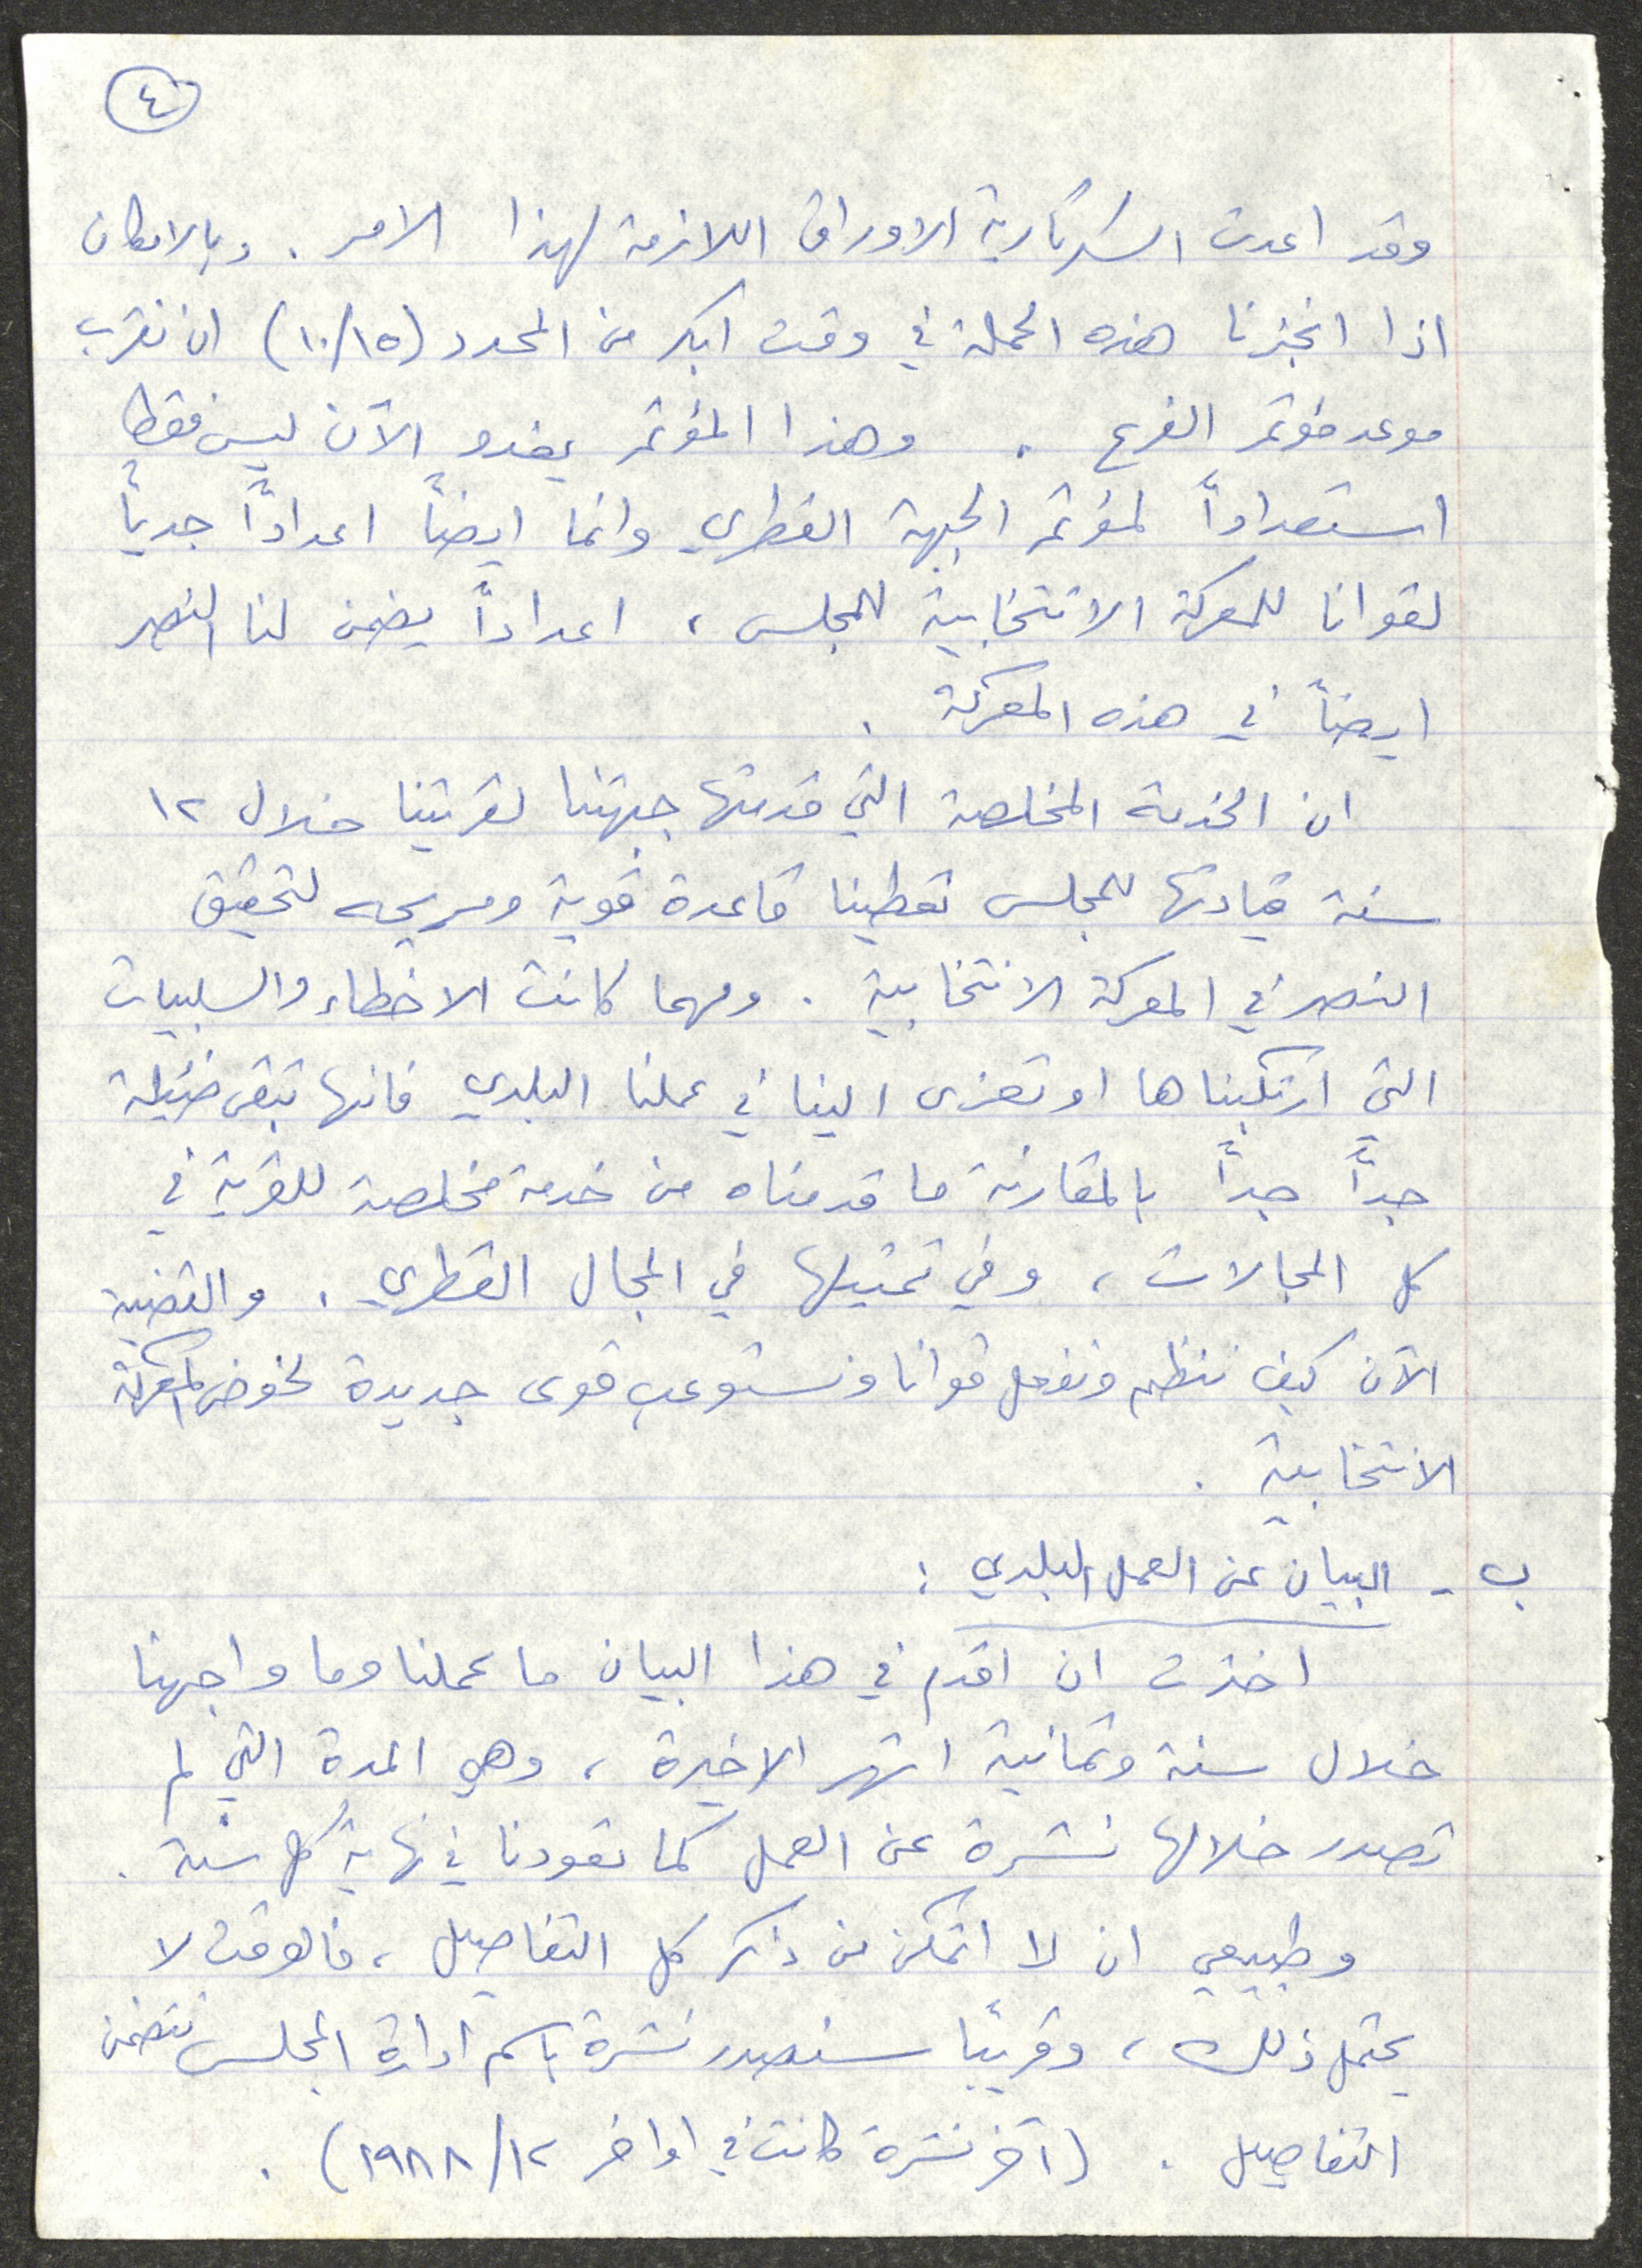 ٤
وقد اعدت السكرتارية الاوراق اللازمة لهذا الامر . وبالامكان
اذا انجزنا هذه الحملة في وقت ابكر من المحدد (١٠/١٥) ان نقرب
موعد مؤتمر الفرع . وهذا المؤتمر يغدو الآن ليس فقط
استعداداً لمؤتمر الجبهة القطري وانما ايضاً اعداداً جدياً
لقوانا للمعركة الانتخابية للمجلس ، اعداداً يضمن لنا النصر
ايضاً في هذه المعركة .
ان الخدمة المخلصة التي قدمتها جبهتنا لقريتنا خلال ١٢
سنة قيادتها للمجلس تعطينا قاعدة قوية ومريحه لتحقيق
النصر في المعركة الانتخابية . ومهما كانت الاخطاء والسلبيات
التي ارتكبناها او تعزى الينا في عملنا البلدي فانها تبقى ضئيلة
جداً جداً بالمقارنة ما قدمناه من خدمة مخلصة للقرية في
كل المجالات ، وفي تمثيلها في المجال القطري . والقضية
الآن كيف ننظم ونفعل قوانا ونستوعب قوى جديدة لخوض المعركة
الانتخابية .
ب - البيان عن العمل البلدي :
اخترت ان اقدم في هذا البيان ما عملنا وما واجهنا
خلال سنة وثمانية اشهر الاخيرة ، وهي المدة التي لم
تصدر خلالها نشرة عن العمل كما تعودنا في نهاية كل سنة .
وطبيعي ان لا اتمكن من ذكر كل التفاصيل ، فالوقت لا
يحتمل ذلك ، وقريبًا سنصدر نشرة باسم ادارة المجلس تتضمن
التفاصيل . (آخر نشرة كانت في اواخر ١٢/١٩٨٨) .